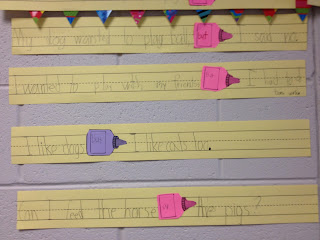 My dog wanted play ball but I said no.
I wanted to play with my friends I had to
I like dogs I like cats too.
Can I feed the horse or the pigs?